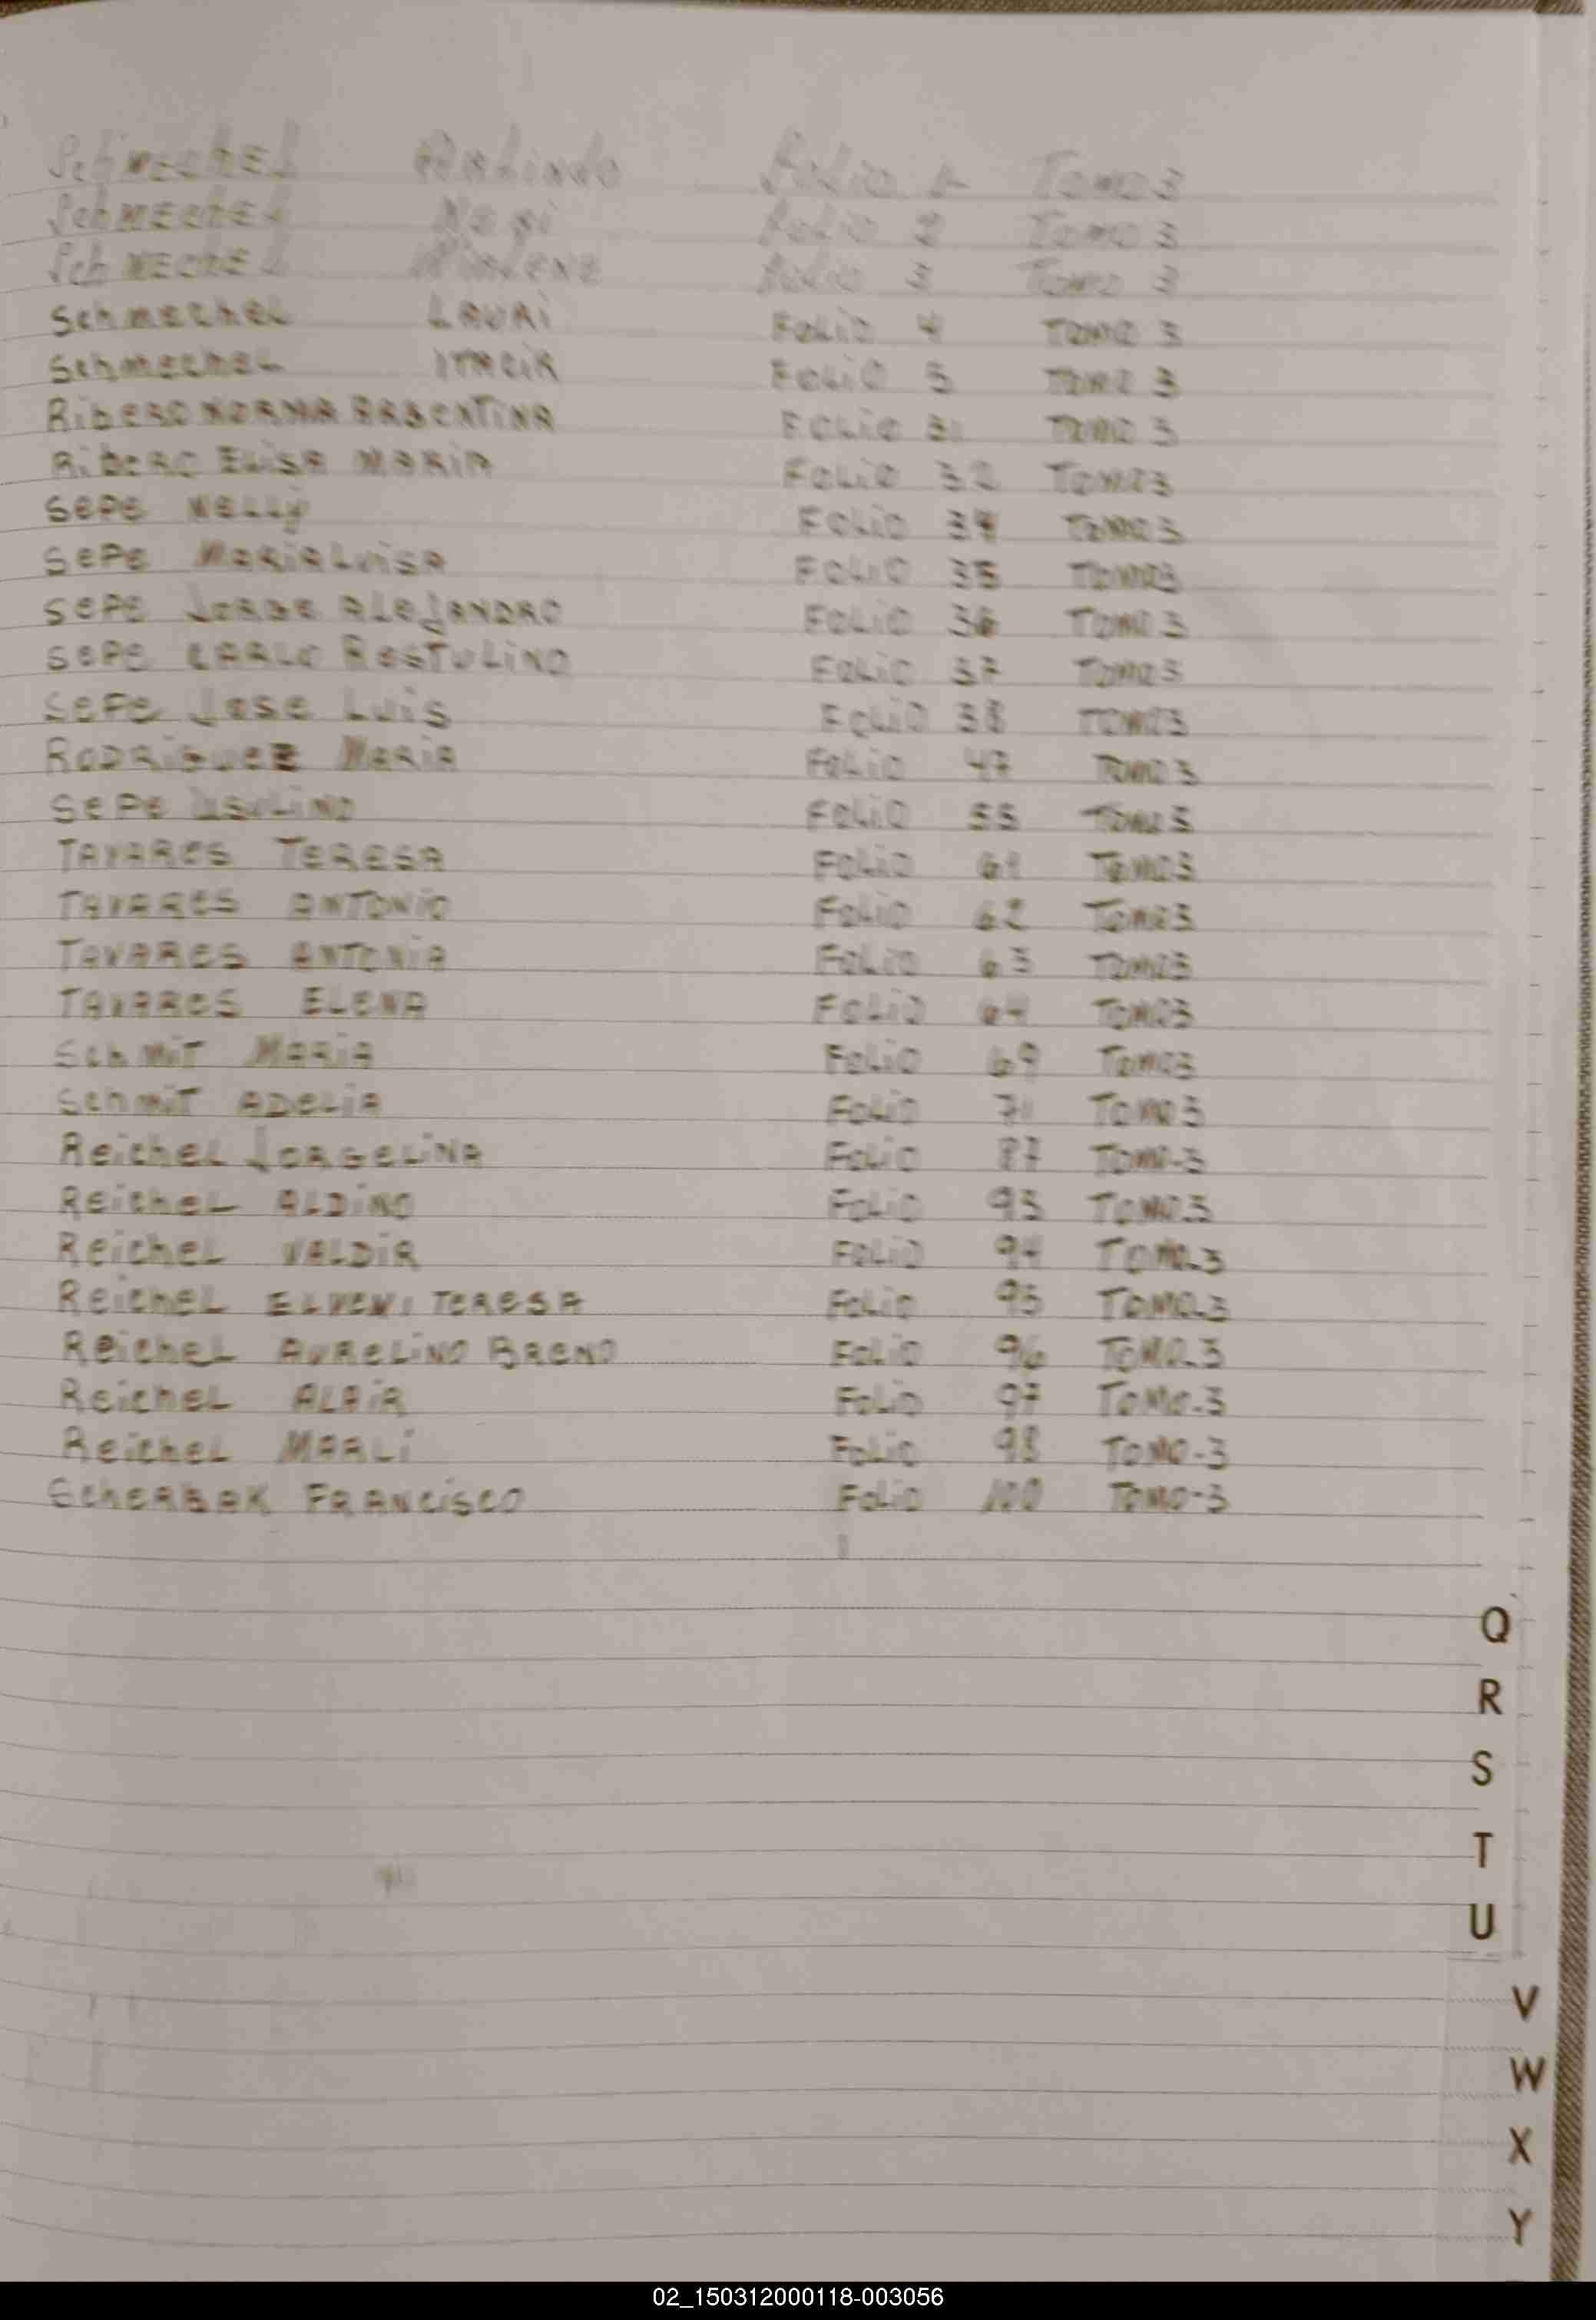 Schmechel Arlindo Folio 1 Tomo 3
Schmechel Folio 2 Tomo 3
Schmechel Folio 3 Tomo 3
Schmechel LAURi FoLiO 4 TOMO 3
Schmechel ITACIR FoLiO 5 TOMO 3
RiBERO NORMA ARGENTINA FOLiO 31 TOMO 3
RiBERO ELiSA MARiA FOLiO 32 TOMO 3
SEPE NELLy FOLiO 34 TOMO 3
SEPE MARiA LuiSA FOLiO 35 TOMO 3
SEPE JORGE ALEJANDRO FOLiO 36 TOMO 3
SEPE CARLO RESTULiNO FOLiO 37 TOMO 3
SEPE JOSE LuiS FOLiO 38 TOMO 3
RODRiGUEZ MARiA FOLiO 47 TOMO 3
SEPE FOLiO 55 TOMO 3
TAVARES TERESA FOLiO 61 TOMO 3
TAVARES ANTONiO FOLiO 62 TOMO 3
TAVARES ANTONiA FOLiO 63 TOMO 3
TAVARES ELENA FOLiO 64 TOMO 3
SchmiT MARiA FOLiO 69 TOMO 3
SchmiT ADELiA FOLiO 71 TOMO 3
ReicheL JORGELiNA FOLiO 87 TOMO-3
ReicheL ALDiNO FOLiO 93 TOMO.3
ReicheL VALDiR FOLiO 94 TOMO.3
ReicheL ELVENi TERESA FOLiO 95 TOMO.3
ReicheL AURELiNO BRENO FOLiO 96 TOMO.3
ReicheL ALAiR FOLiO 97 TOMO.3
ReicheL MARLi FOLiO 98 TOMO-3
SCHERBAK FRANCiSCO FOLiO 100 TOMO-3
Q
R
S
T
U
V
W
X
Y
02_150312000118-003056